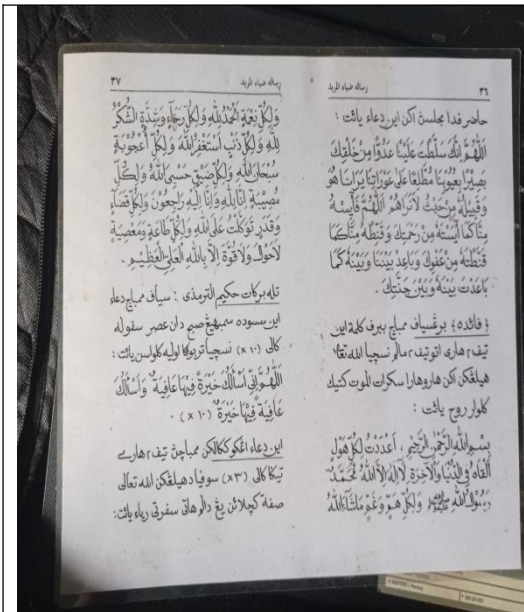 ٣٦
رساله ضياء المريد
حاضر فدا مجلسڽ اكن اين دعاء يائت :
اَللّٰهُمَّ اِنَّكَ سَلَّطْتَ عَلَيْنَا عَدُوًّا مِنْ خَلْقِكَ
بَصِيْرًا بِعُيُوْبِنَا مُطَّلِعًا عَلَى عَوْرَاتِنَا يَرَانَا هُوَ
وَقَبِيْلُهُ مِنْ حَيْثُ لَا نَرَاهُمْ اَللّٰهُمَّ فَآيِسْهُ
مِنَّا كَمَا آيَسْتَهُ مِنْ رَحْمَتِكَ وَقَنِّطْهُ مِنَّا كَمَا
قَنَّطْتَهُ مِنْ عَفْوِكَ وَبَاعِدْ بَيْنَنَا وَبَيْنَهُ كَمَا
بَاعَدْتَ بَيْنَهُ وَبَيْنَ جَنَّتِكَ .
﴿ فائده ﴾ برڠسياف ممباچ ببرف كلمة اين
تيف٢ هاري اتو تيف٢ مالم نسچيا الله تعالى
هيلڠكن اكن هاروهارا سكرات الموت كتيك
كلوار روح يائت :
بِسْمِ اللهِ الرَّحْمٰنِ الرَّحِيْمِ . اَعْدَدْتُ لِكُلِّ هَوْلٍ
اَلْقَاهُ فِى الدُّنْيَا وَالْآخِرَةِ لَا اِلٰهَ اِلَّا اللهُ مُحَمَّدٌ
رَسُوْلُ اللهِ ﷺ وَلِكُلِّ هَمٍّ وَغَمٍّ مَا شَاءَ اللهُ
٣٧
رساله ضياء المريد
وَلِكُلِّ نِعْمَةٍ اَلْحَمْدُ لِلّٰهِ وَلِكُلِّ رَخَاءٍ وَشِدَّةٍ اَلشُّكْرُ
لِلّٰهِ وَلِكُلِّ ذَنْبٍ اَسْتَغْفِرُ اللهَ وَلِكُلِّ اُعْجُوْبَةٍ
سُبْحَانَ اللهِ وَلِكُلِّ ضِيْقٍ حَسْبِيَ اللهُ وَلِكُلِّ
مُصِيْبَةٍ اِنَّا لِلّٰهِ وَاِنَّا اِلَيْهِ رَاجِعُوْنَ وَلِكُلِّ قَضَاءٍ
وَقَدَرٍ تَوَكَّلْتُ عَلَى اللهِ وَلِكُلِّ طَاعَةٍ وَمَعْصِيَةٍ
لَا حَوْلَ وَلَا قُوَّةَ اِلَّا بِاللهِ الْعَلِيِّ الْعَظِيْمِ .
تله بركات حكيم الترمذي : سياف ممباچ دعاء
اين سسوده سمبهيڠ صبح دان عصر سڤوله
كالي (١٠ ×) نسچيا تربوكا اوليه كلواسن يائت :
اَللّٰهُمَّ اِنِّى اَسْأَلُكَ خَيْرَةً فِيْهَا عَافِيَةٌ وَاَسْأَلُكَ
عَافِيَةً فِيْهَا خَيْرَةٌ (١٠ ×) .
اين دعاء اڠكو ككالكن ممباچڽ تيف٢ هاري
تيڬا كالي (٣ ×) سوفيا دهيلڠكن الله تعالى
صفة كچلائن يڠ دالم هاتي سفرتي رياء يائت :